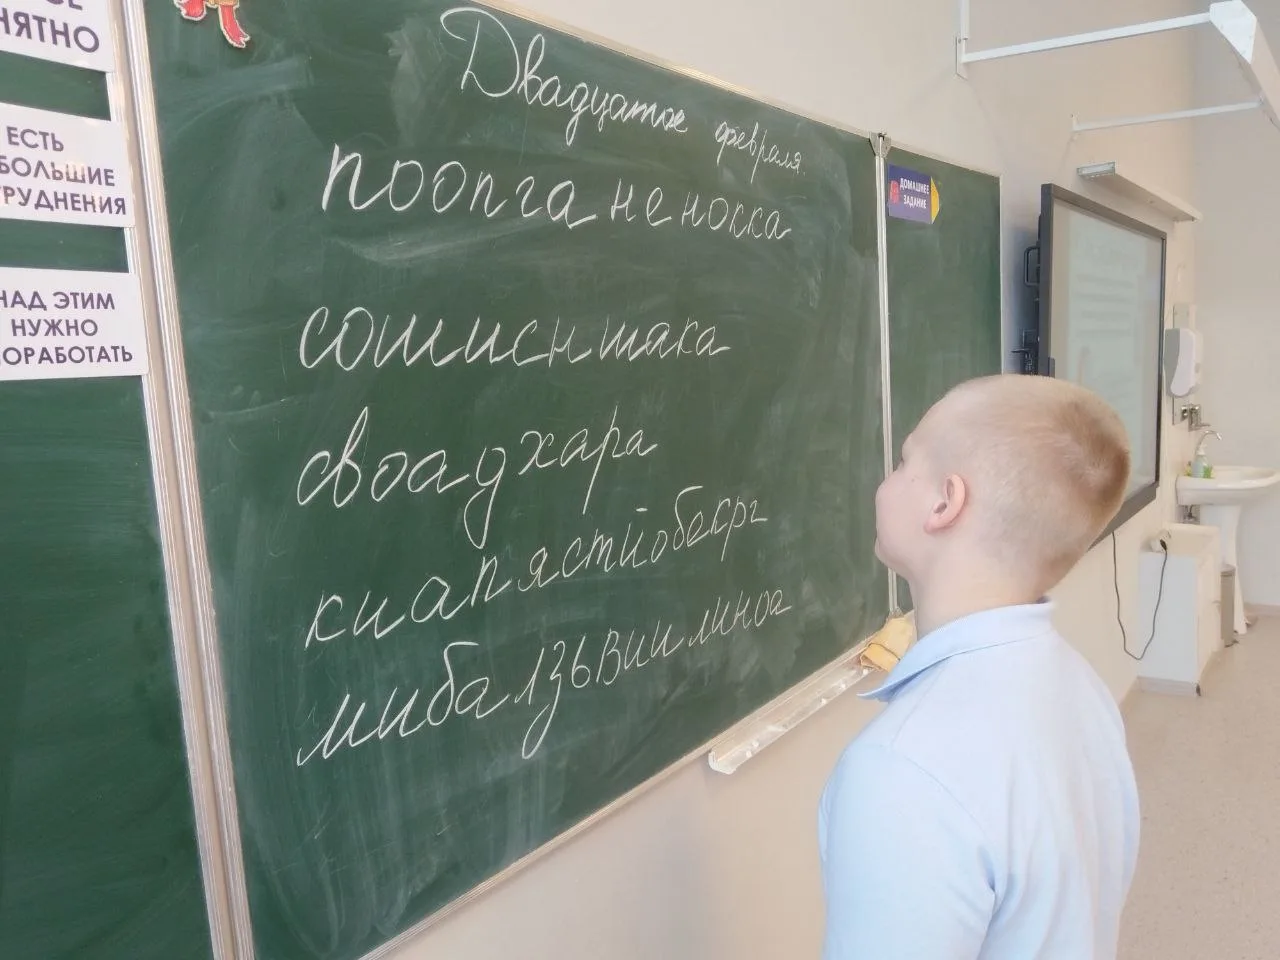 НЯТНО
ЕСТЬ
БОЛЬШИЕ
РУДНЕНИЯ
НАД ЭТИМ
НУЖНО
ОРАБОТАТЬ
Двадцатое февраля.
поопганенокка
сошисншака
своадхара
киапястйобекрг
мибалзьвиилиноа
ДОМАШНЕЕ
ЗАДАНИЕ